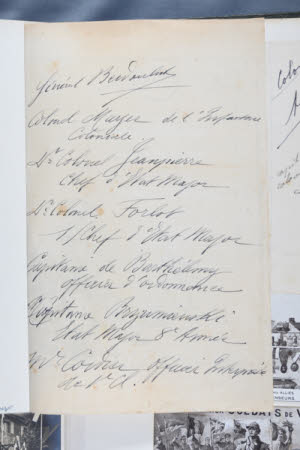 Général Berdoulat
Colonel Meyer de l'Infanterie
Coloniale.
Lt Colonel Jeanpierre
Chef d'Etat Major
Lt Colonel Forlot
1/Chef d'Etat Major
Capitaine de Barthélemy
officier d'ordonnance
Capitaine
Etat Major 8e Armée
Mr officier Interprète
de l'A.
ALLIÉS
SOLDATS DE